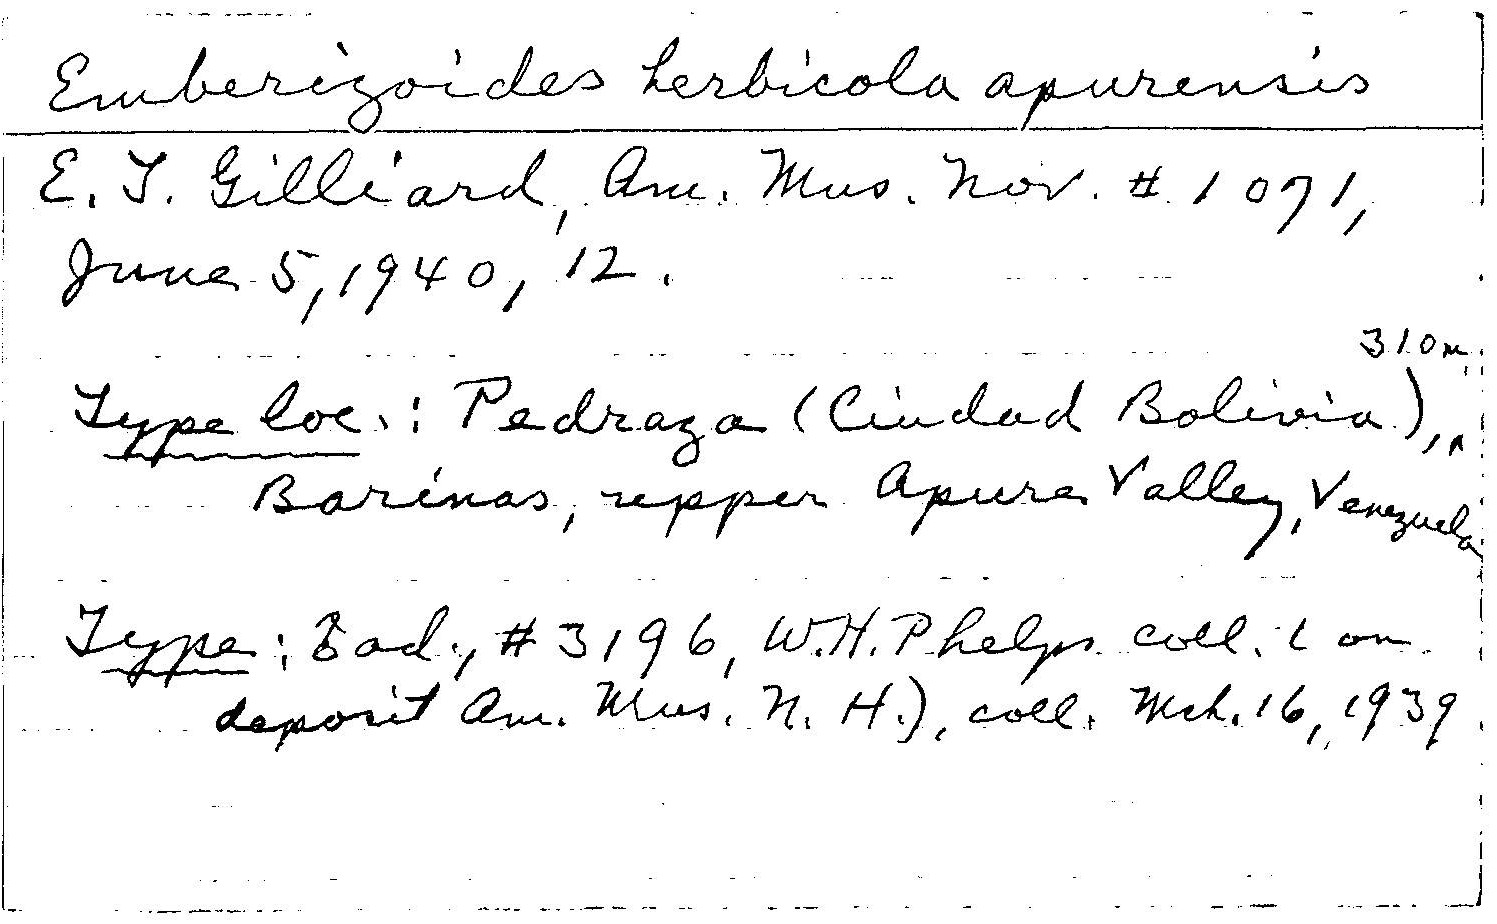 Emberizoides herbicola apurensis
E. T. Gilliard, Am. Mus. Nov. # 1071,
June 5, 1940, 12.
310m.
Type loc.: Pedraza (Ciudad Bolivia),^
Barinas, upper Apure Valley, Venezuela
Type: ad., #3196, W.H. Phelps coll. ( on
deposit Am. Mus. N. H.), coll. Mch. 16, 1939.